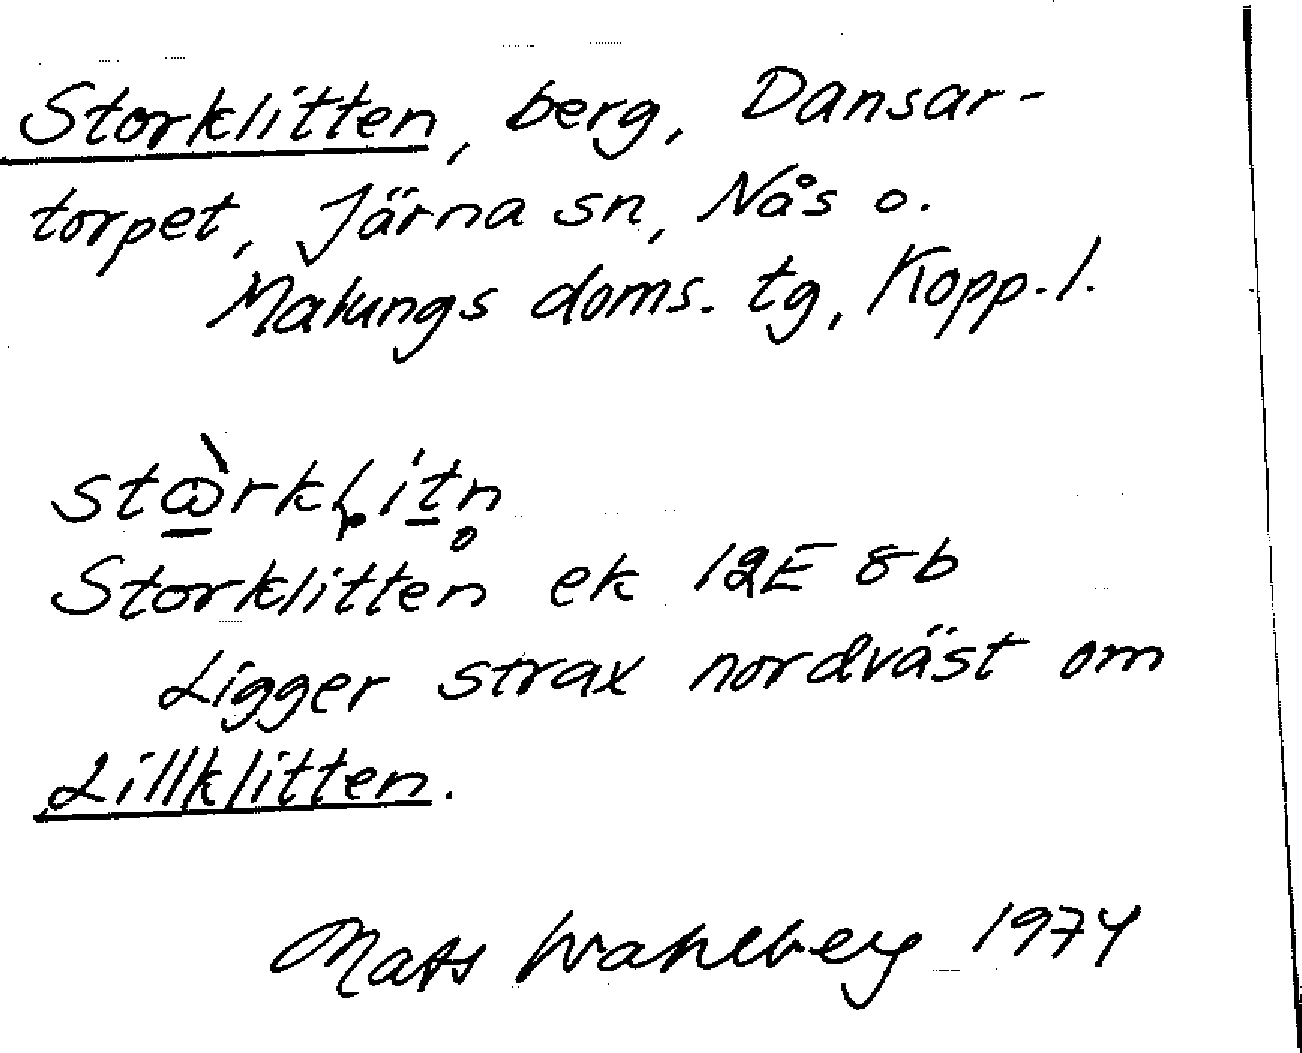 Storklitten, berg, Dansar-
torpet, Järna sn, Nås o.
Malungs doms. tg, Kopp. l.
Storklitten ek 12E 8b
Ligger strax nordväst om
Lillklitten.
Mats Wahlberg 1974